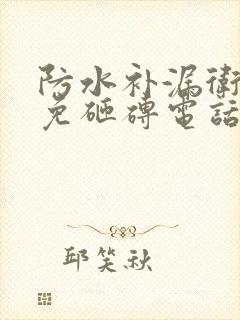 防水补漏衛
免砸磚電話
邱笑秋